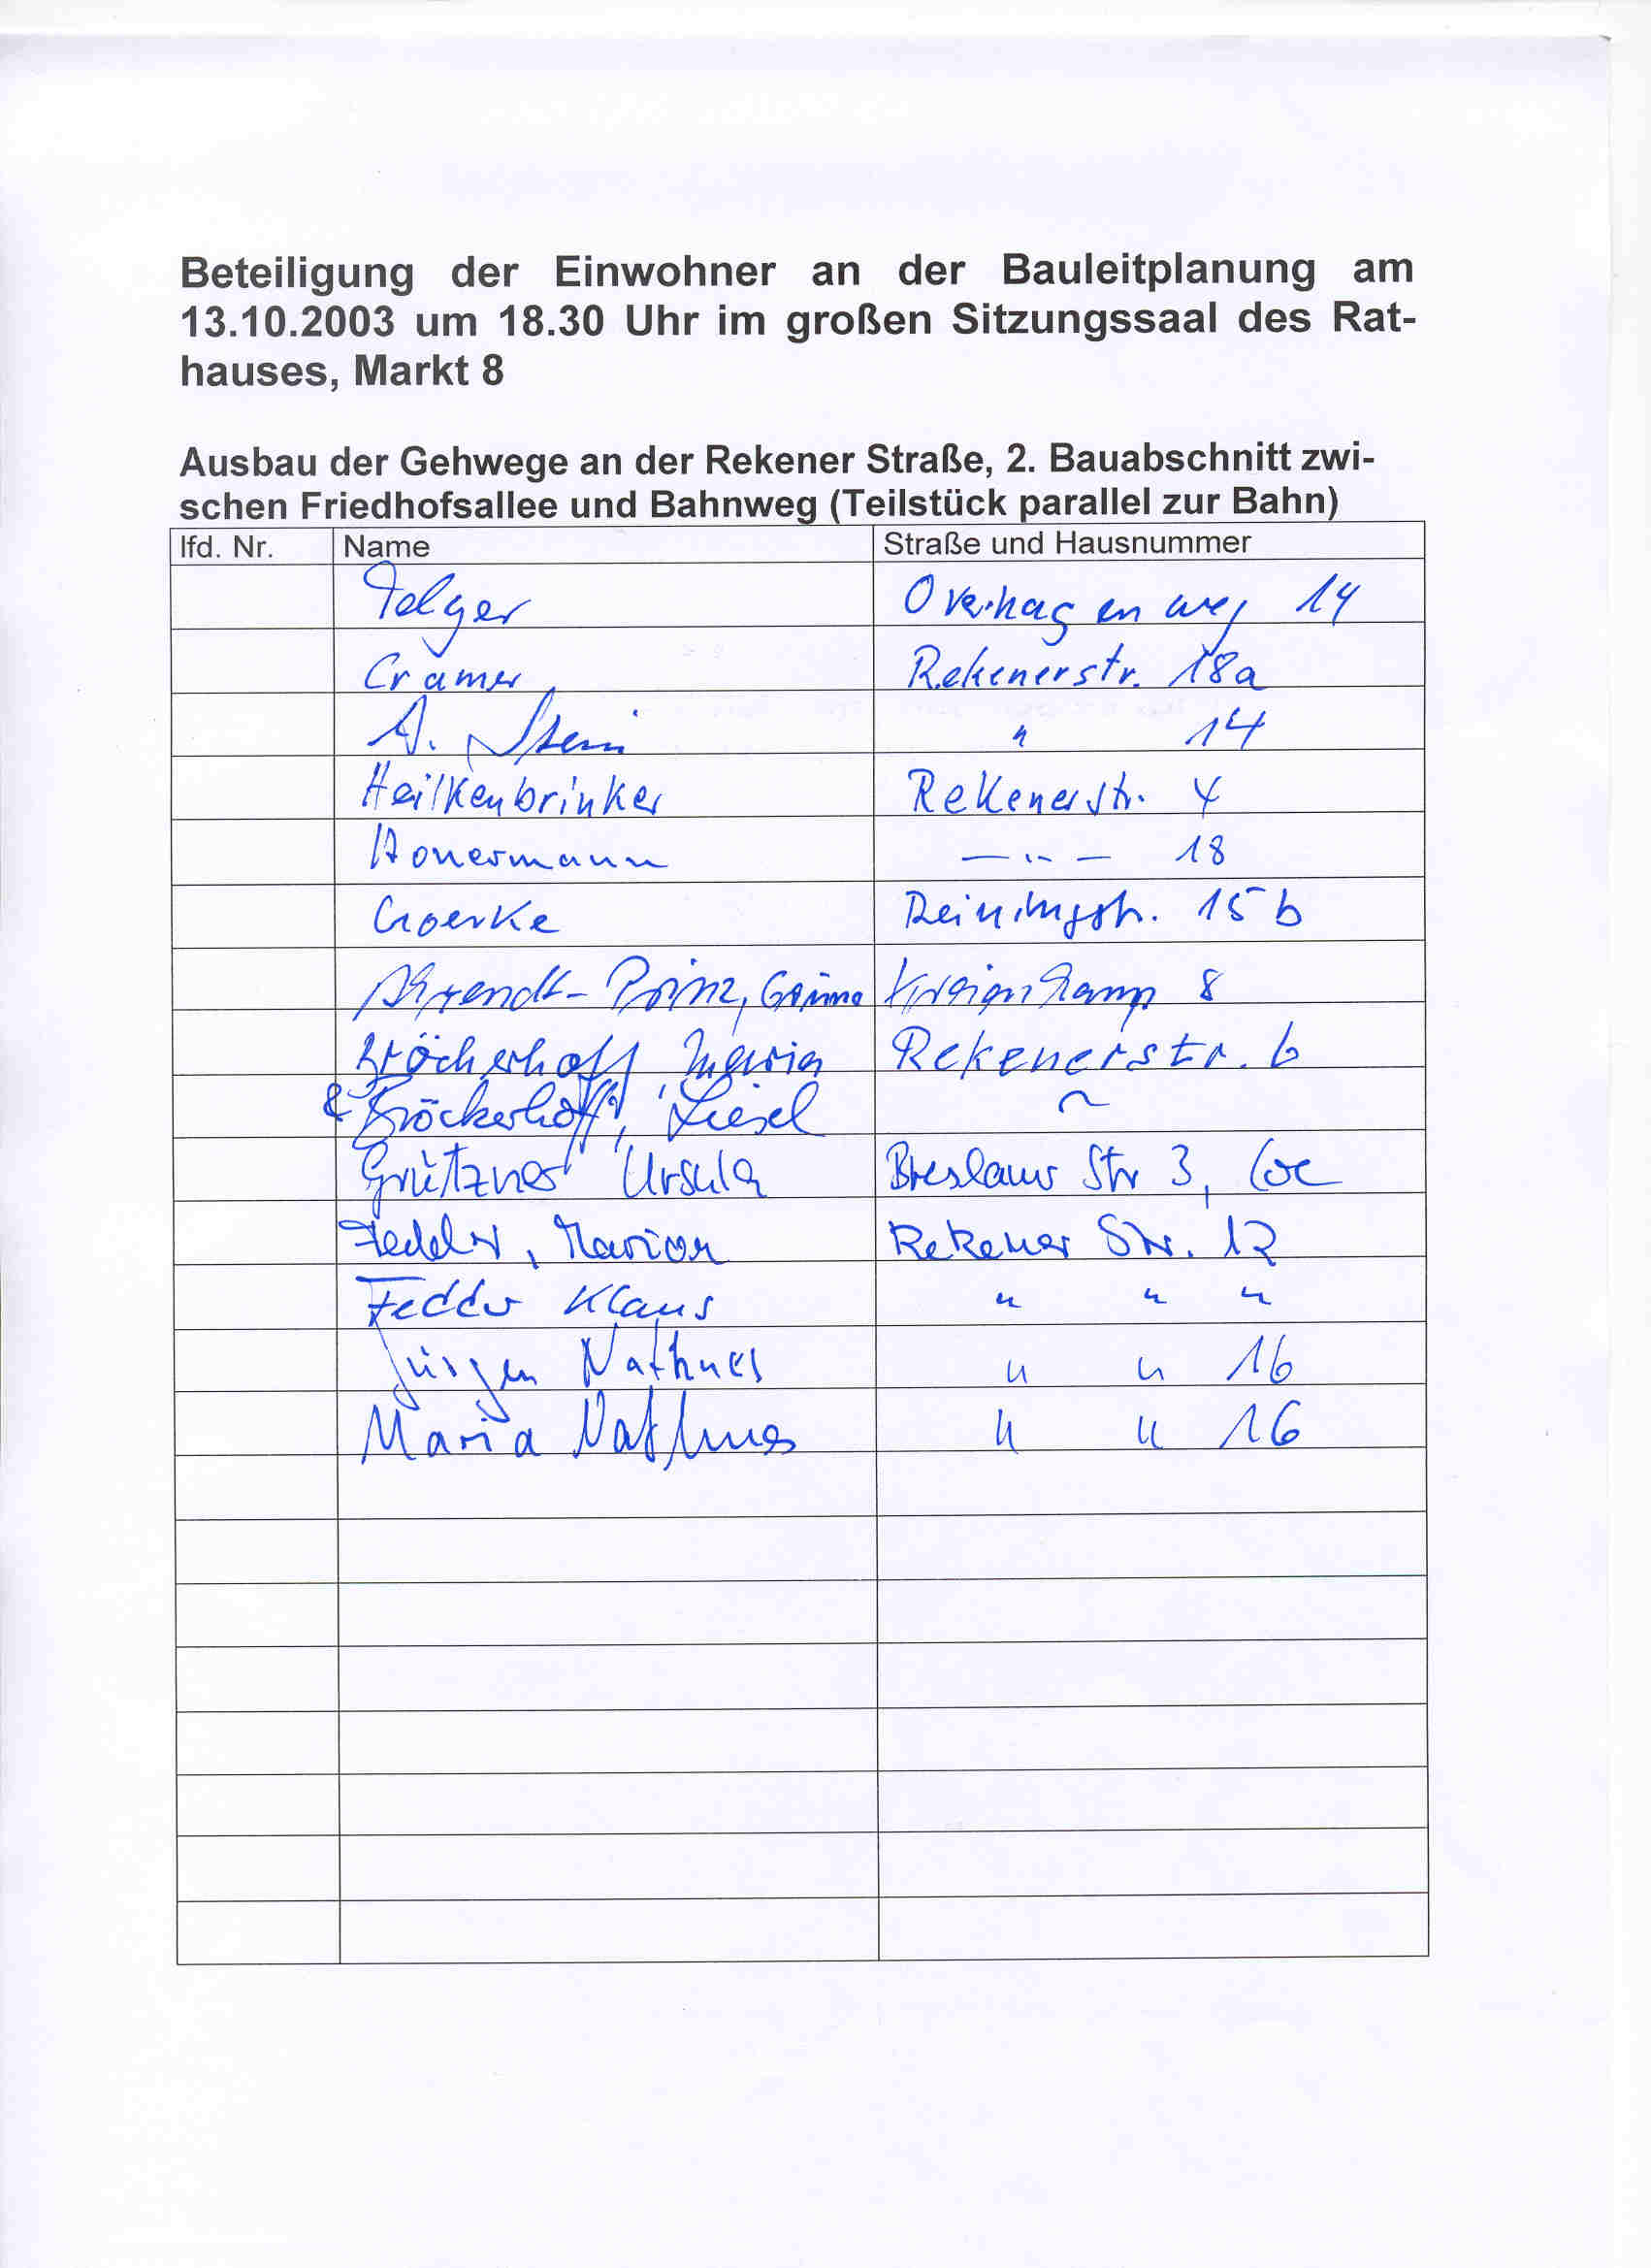 Beteiligung der Einwohner an der Bauleitplanung am
13.10.2003 um 18.30 Uhr im großen Sitzungssaal des Rat-
hauses, Markt 8
Ausbau der Gehwege an der Rekener Straße, 2. Bauabschnitt zwi-
schen Friedhofsallee und Bahnweg (Teilstück parallel zur Bahn)
lfd. Nr. Name Straße und Hausnummer
Telger Overhagenweg 14
Cramer Rekenerstr. 18a
A. Stein " 14
Heilkenbrinker Rekenerstr. 4
Honermann — " — 18
Goerke 15 b
8
Bröckerhoff, Maria Rekenerstr. 6
& Bröckerhoff, Liesel ~
Grützner Ursula Breslauer Str 3, Coe
Fedder, Marion Rekener Str. 12
Fedder Klaus " " "
Jürgen Nathues " " 16
Maria Nathues " " 16